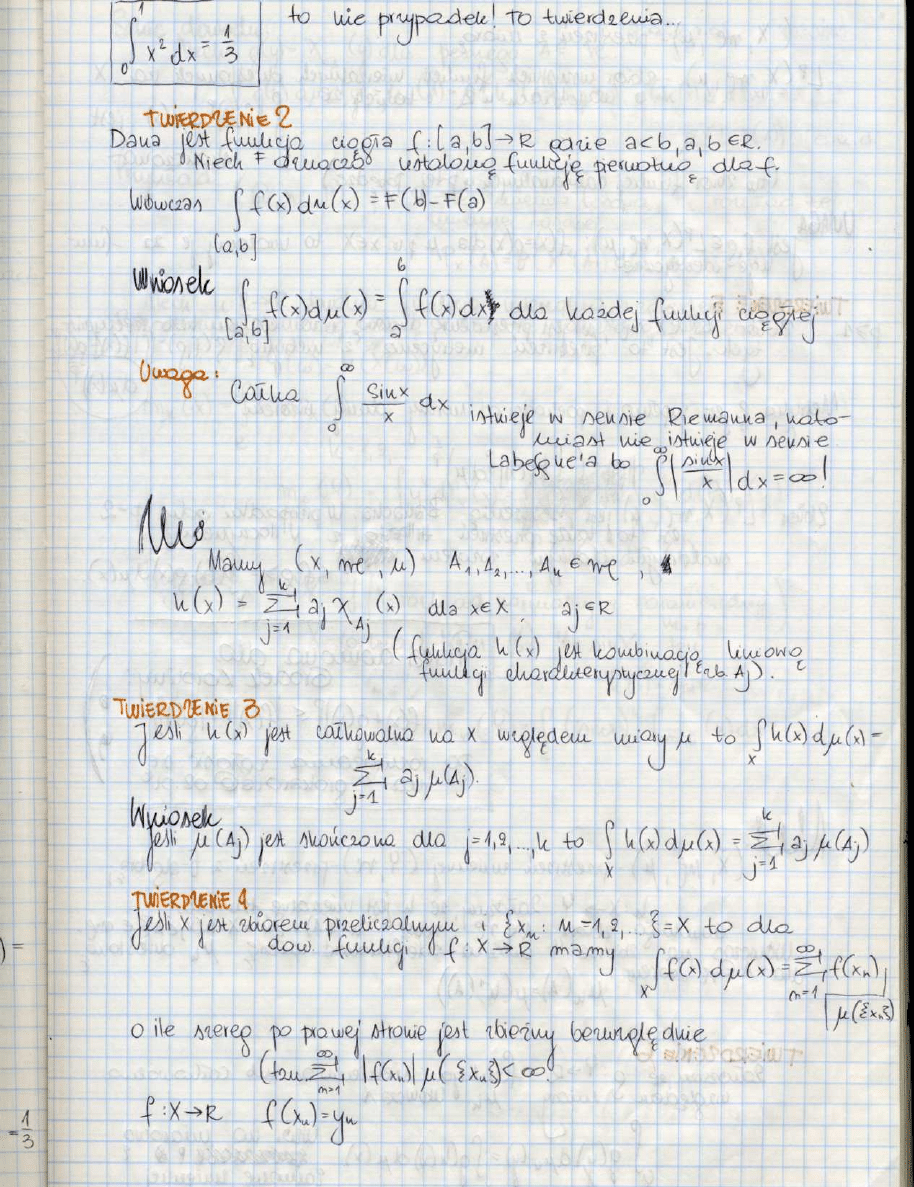 ∫₀¹ x² dx = 1/3 to nie przypadek! To twierdzenia...
TWIERDZENIE 2
Dana jest funkcja ciągła f: [a,b] → R gdzie a<b, a, b ∈ R.
Niech F oznacza ustaloną funkcję pierwotną dla f.
Wówczas ∫_[a,b] f(x) dμ(x) = F(b) - F(a)
Wniosek ∫_[a,b] f(x) dμ(x) = ∫ₐᵇ f(x) dx dla każdej funkcji ciągłej
Uwaga:
Całka ∫₀^∞ sinx/x dx istnieje w sensie Riemanna, nato-
miast nie istnieje w sensie
Labesgue'a bo ∫₀^∞ |sinx/x| dx = ∞!
Mamy (X, 𝔐, μ) A₁, A₂, ..., Aₖ ∈ 𝔐,
h(x) = Σ_{j=1}^{k} aj χ_{Aj} (x) dla x∈X, aj ∈ R
(funkcja h(x) jest kombinacją liniową
funkcji charakterystycznej zb. Aj).
TWIERDZENIE 3
Jeśli h(x) jest całkowalna na X względem miary μ to ∫_X h(x) dμ(x) =
Σ_{j=1}^{k} aj μ(Aj).
Wniosek
Jeśli μ(Aj) jest skończona dla j=1,2,...,k to ∫_X h(x) dμ(x) = Σ_{j=1}^{k} aj μ(Aj)
TWIERDZENIE 4
Jeśli X jest zbiorem przeliczalnym i {xₙ: n=1,2,...}=X to dla
dow. funkcji f: X→R mamy ∫_X f(x) dμ(x) = Σ_{n=1}^{∞} f(xₙ)
μ({xₙ})
) =
o ile szereg po prawej stronie jest zbieżny bezwzględnie
(tzn. Σ_{n=1}^{∞} |f(xₙ)| μ({xₙ}) < ∞
f: X→R f(xₙ) = yₙ
= 1/3